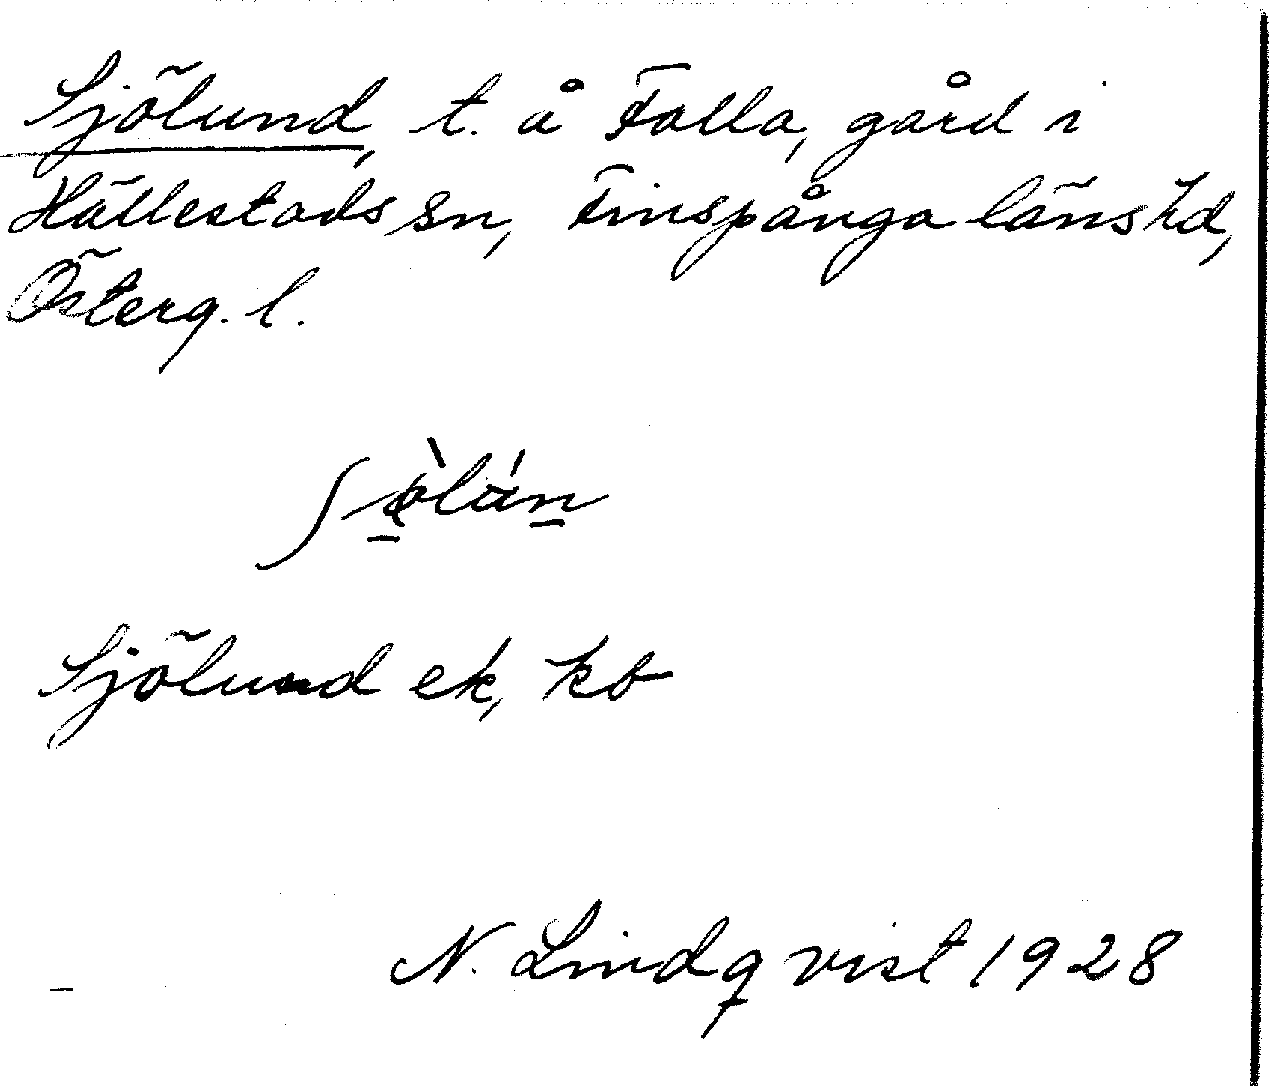 Sjölund, t. å Folla, gård i
Hällestads sn, Finspånga läns hd,
Österg. l.
Sjölund ek, kb
N. Lindqvist 1928